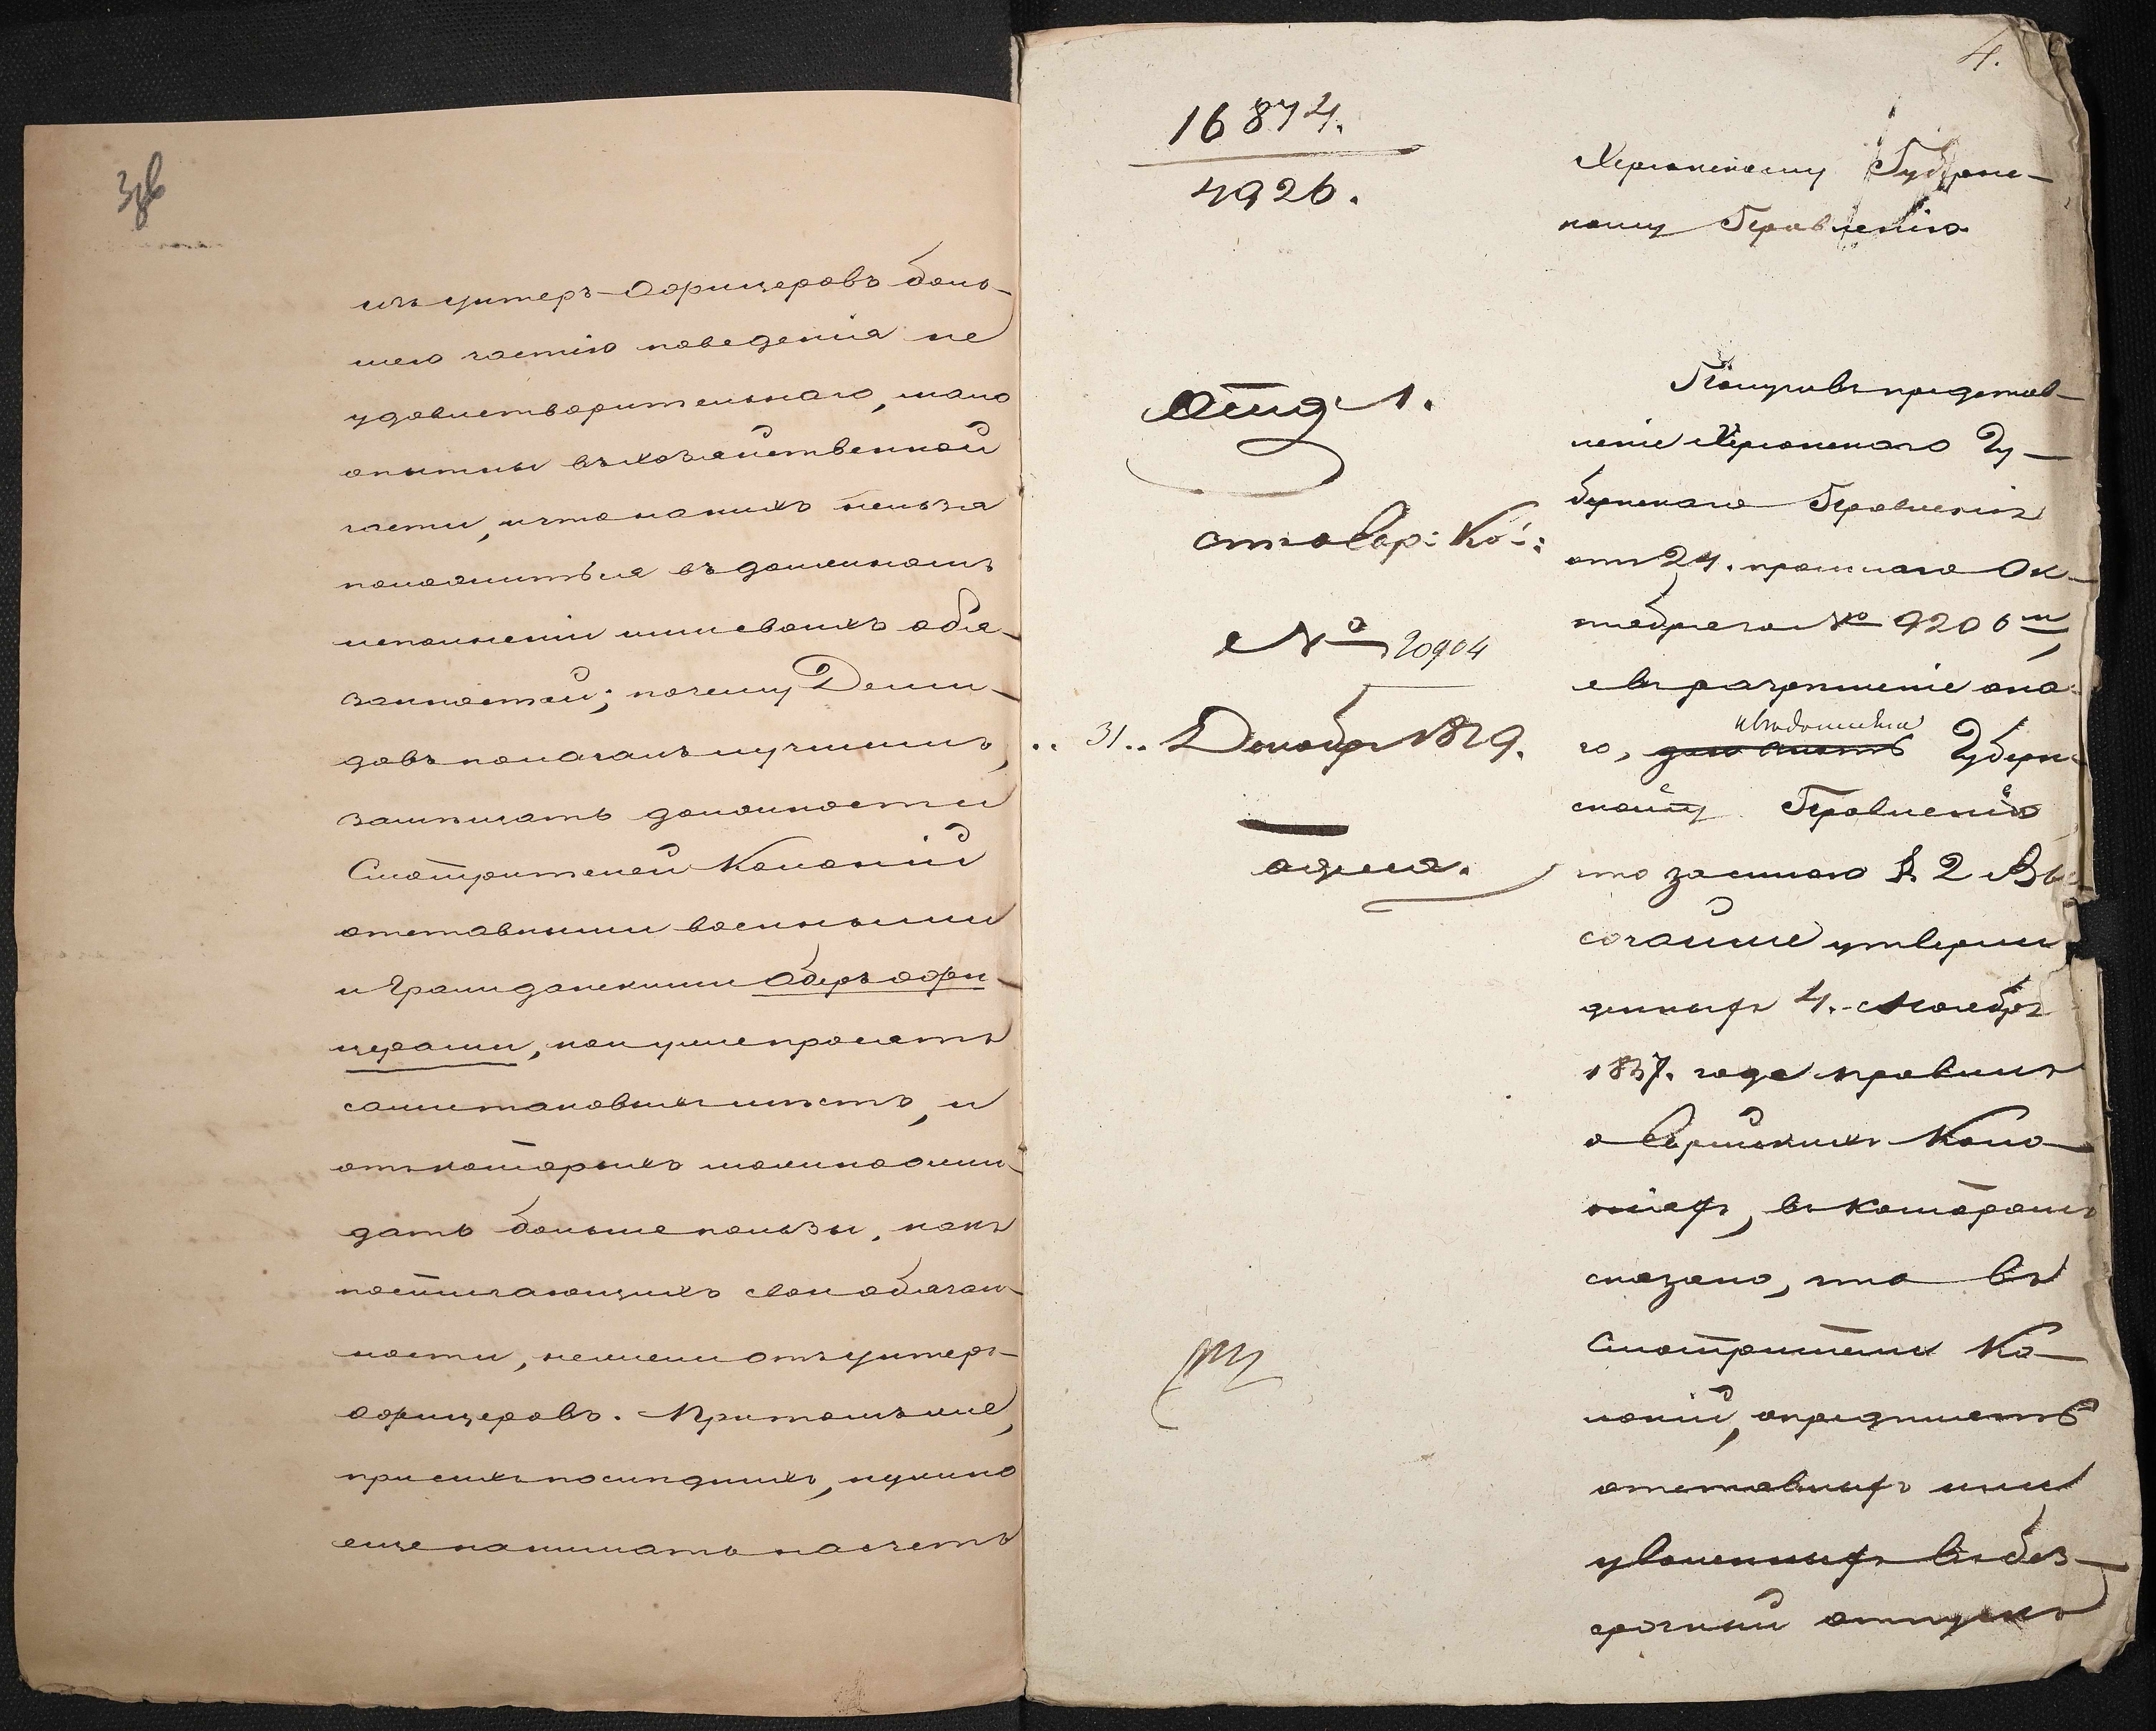 3 об
изъ унтеръ-офицеровъ боль-
шею частію поведенія не
удовлетворительнаго, мало
опытны въ хозяйственной
части, и что на нихъ нельзя
положиться въ должномъ
исполненіи ими своихъ обя-
занностей; почему Деми-
довъ полагалъ лучшимъ,
замѣщать должности
Смотрителей Колоній
отставными военными
и гражданскими оберъ офи-
церами, кои уже просятъ
сами таковыхъ мѣстъ, и
отъ которыхъ можно ожи-
дать больше пользы, какъ
постигающихъ свои обязан-
ности, нежели отъ унтеръ-
офицеровъ. При томъ же,
при сихъ послѣднихъ, нужно
еще нанимать на счетъ
4.
16874.
4926.
Отд. 1.
столъ Евр: Ко-:
№ 20904
.. 31.. Декабр 1849.
Херсонскому Губерн-
скому Правленію
Получивъ представ-
леніе Херсонскаго Гу-
бернскаго Правленія
отъ 24. прошлаго Ок-
тября за № 9206 м,
въ разрѣшеніе она-
го, даю знать Губерн-
скому Правленію
что за силою § 2 Вы
сочайше утверж
денныхъ 4. Ноября
1847. года правилъ
о Еврейскихъ Коло-
ніяхъ, въ которомъ
сказано, что въ
Смотрители Ко-
лоній, опредѣлять
отставныхъ или
уволенныхъ въ без-
срочный отпускъ